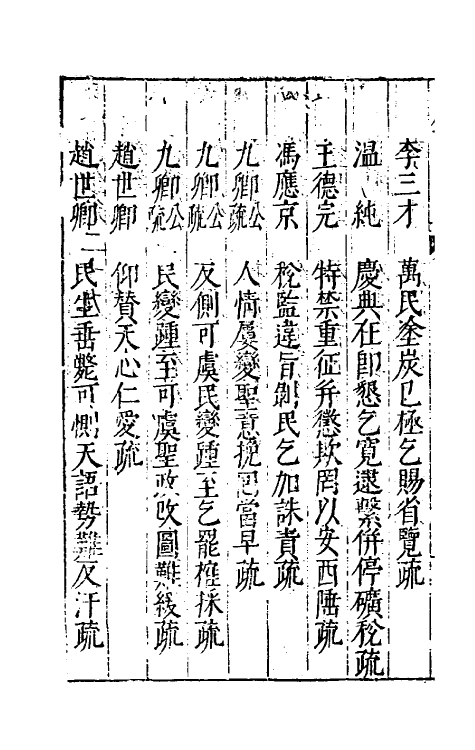 李三才　萬民塗炭已極乞賜省覽疏
温　純　慶典在即懇乞寛逮繫併停礦稅疏
王德完　特禁重征并懲欺罔以安西陲疏
馮應京　稅監違旨剥民乞加誅責疏
九卿公疏　人情屢變聖意挽回當早疏
九卿公疏　反側可虞民變踵至乞罷榷採疏
九卿公疏　民變踵至可虞聖政改圖難緩疏
趙世卿　仰賛天心仁愛疏
趙世卿二　民生垂斃可惻天語勢難反汗疏